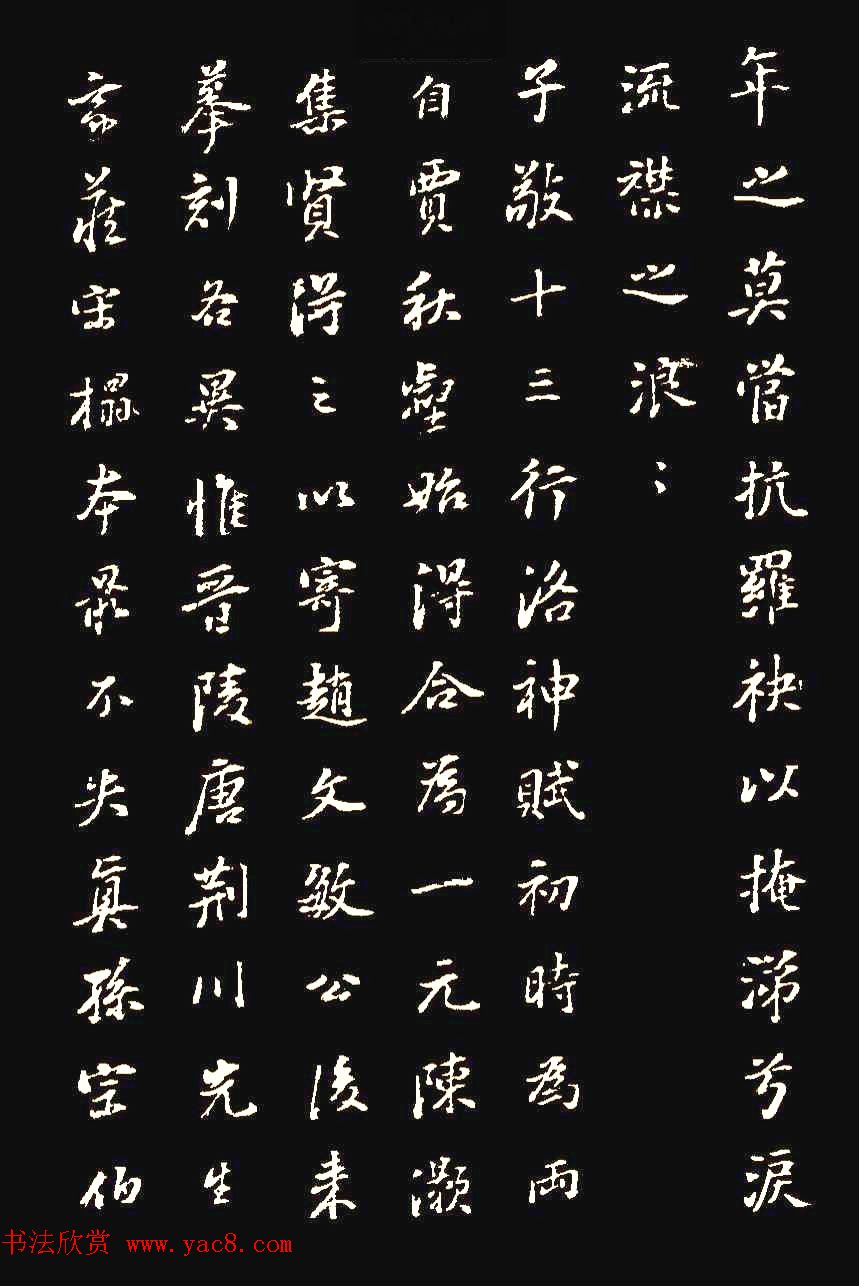 年之莫當抗羅袂以掩涕兮淚
流襟之浪〻
子敬十三行洛神賦初時為兩
自賈秋壑始得合為一元陳灝
集賢得之以寄趙文敏公後來
摹刻各異惟晉陵唐荊川先生
家藏宋榻本最不失真孫宗伯
书法欣赏 www.yac8.com